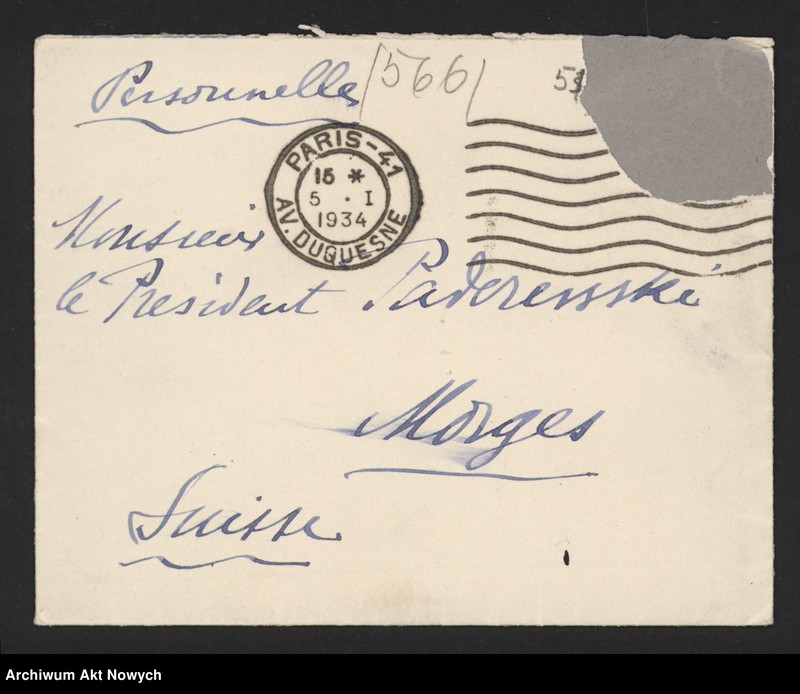 Personnelle
/566/
53
PARIS-41
15 *
5 . I
1934
AV. DUQUESNE
Monsieur
le President Paderewski
Morges
Suisse
Archiwum Akt Nowych